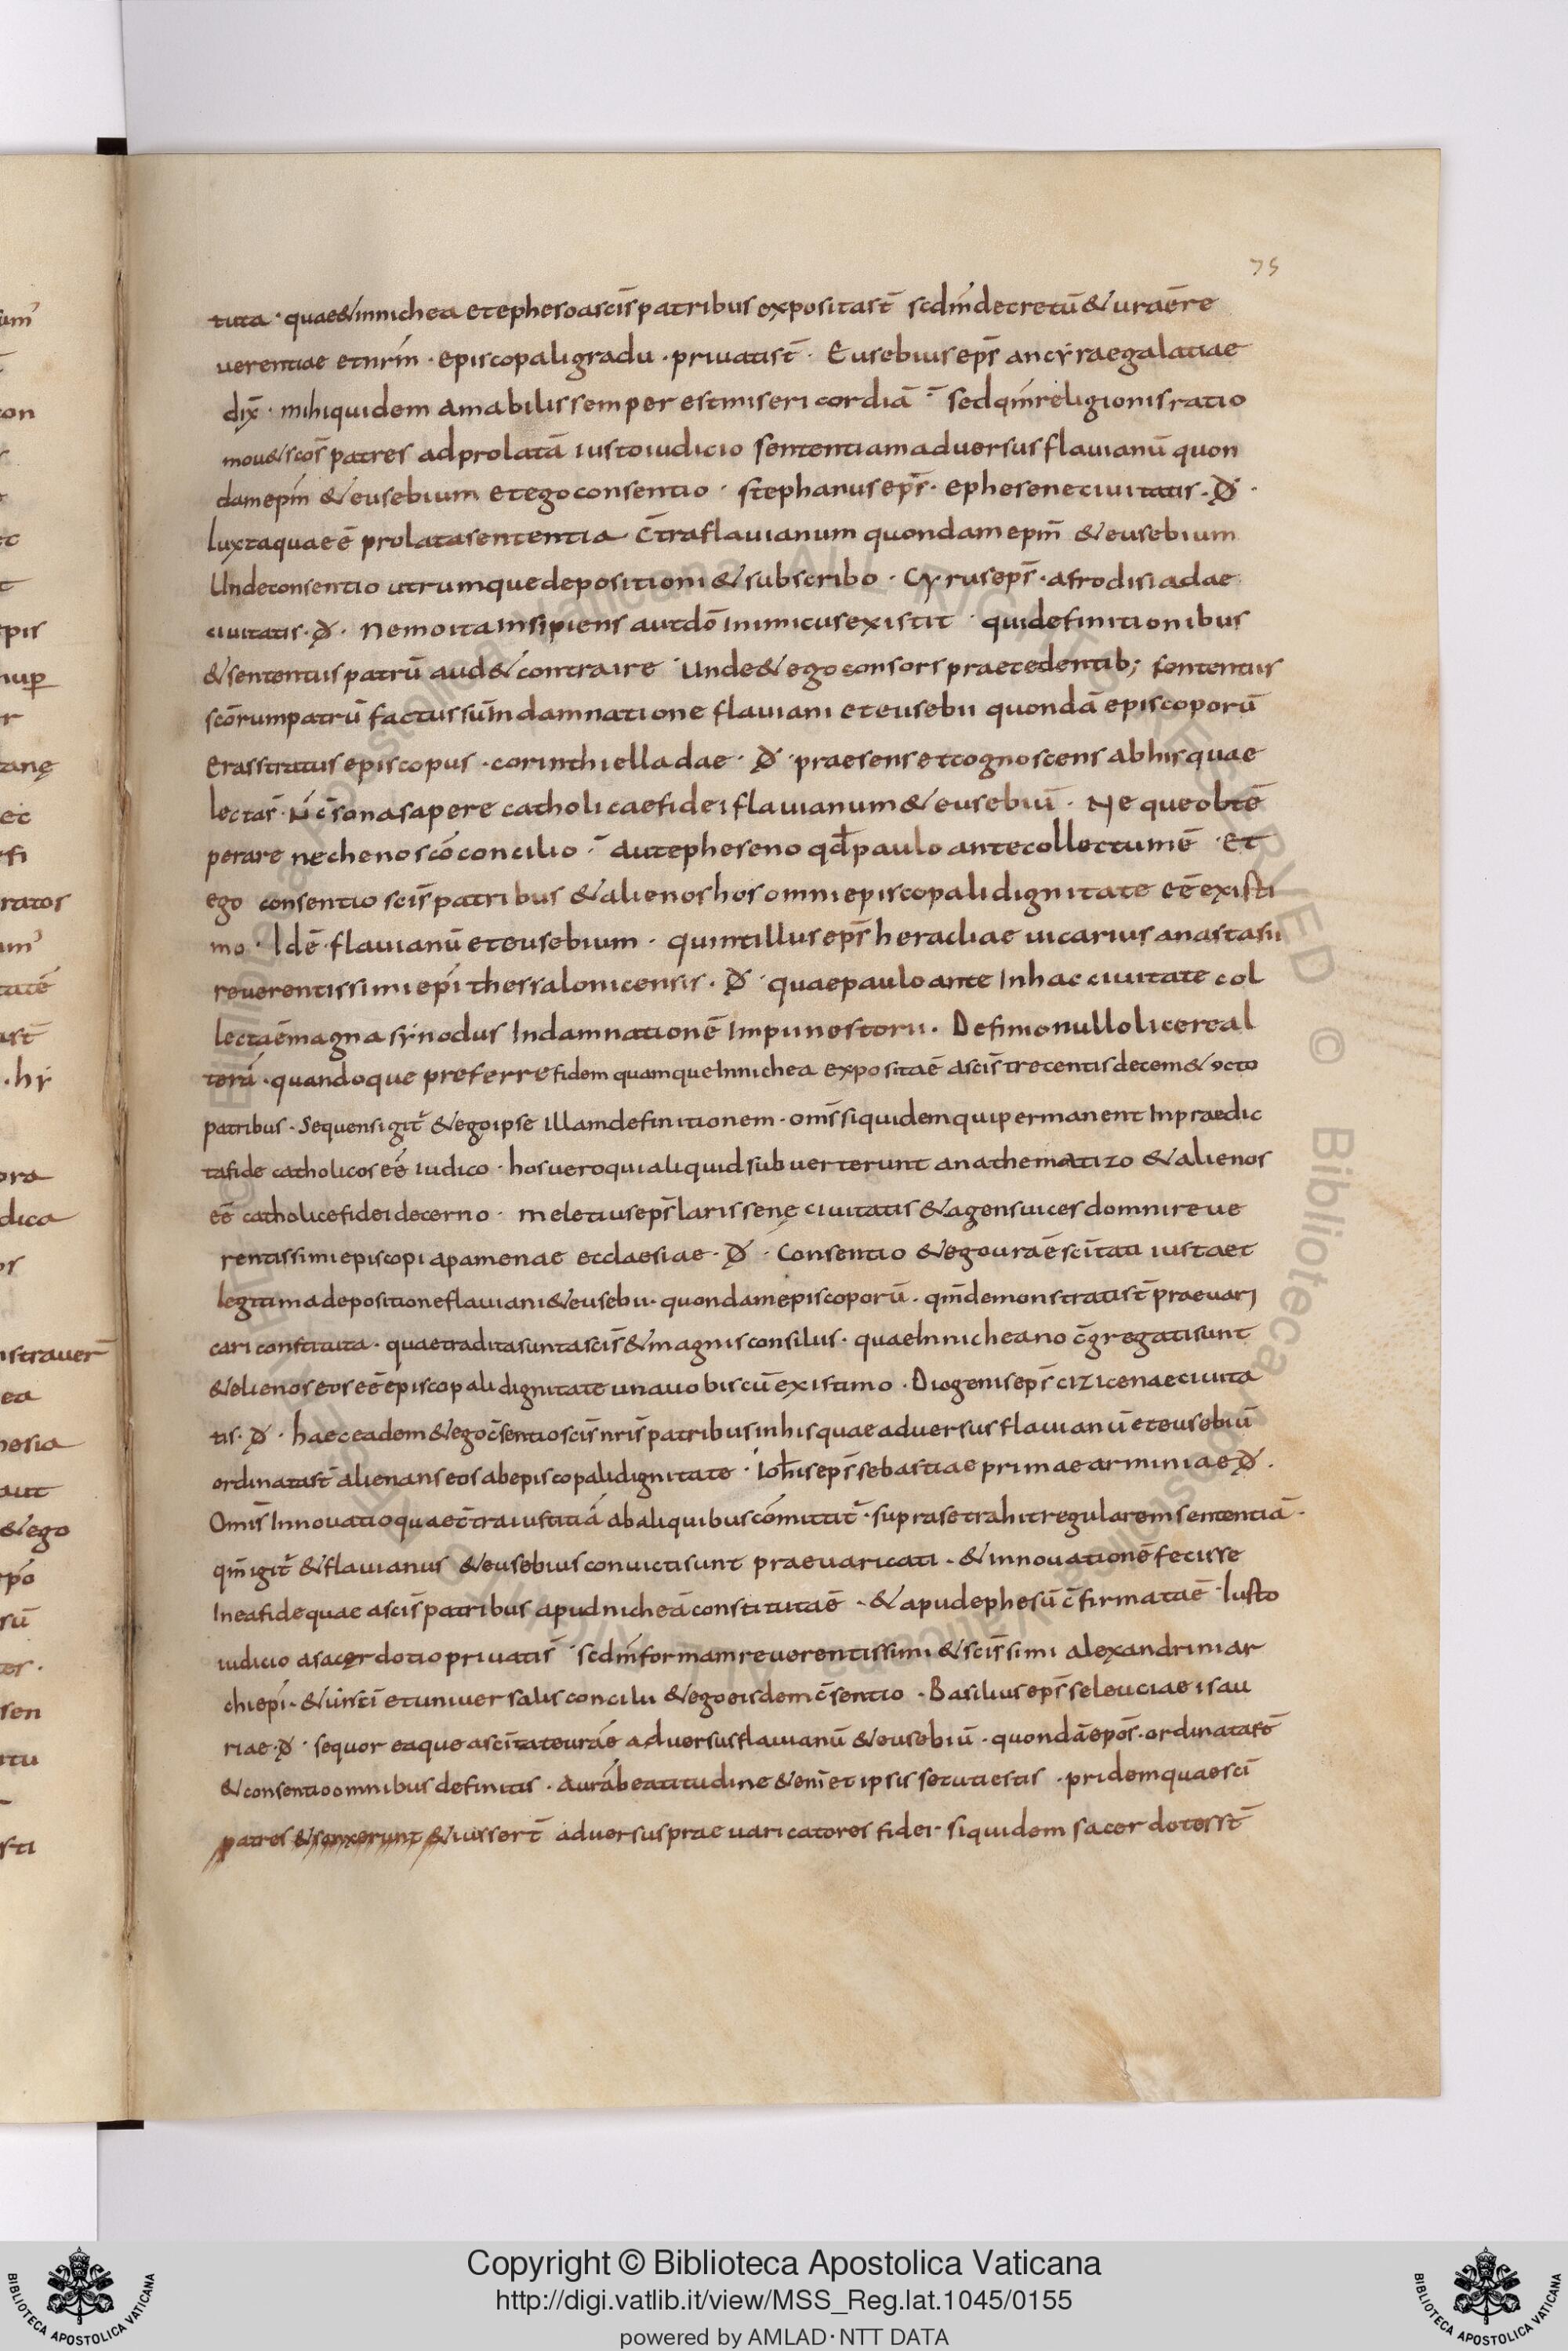 75
tuta · quae & in nichea et epheso a scis̄ patribus exposita st̄ scdm̄ decretū & uraē re
uerentiae et nr̄m · episcopali gradu · priuati st̄ · Eusebius ep̄s ancẏrae galatiae
dix̄ · mihi quidem amabilis semper est misericordiā · sed qm̄ religionis ratio
mou& scōs patres ad prolatā iusto iudicio sententiam aduersus flauianū quon
dam ep̄m & eusebium et ego consentio · stephanus ep̄s · ephesene ciuitatis · D̶ ·
Iuxta quae ē prolata sententia c̄tra flauianum quondam ep̄m & eusebium
Unde consentio utrumque depositioni & subscribo · Cẏrus ep̄s · afrodisiadae
ciuitatis · D̶ · Nemo ita insipiens aut dō inimicus existit · qui definitionibus
& sententiis patrū aud& contraire · Unde & ego consors praecedentib; sententiis
scōrum patrū factus sū in damnatione flauiani et eusebii quondā episcoporū
Erasstratus episcopus · corinthi elladae · D̶ · praesens et cognoscens ab his quae
lecta s̄ · N̄ c̄sona sapere catholicae fidei flauianum & eusebiū · Ne que obtē
perare nec heno scō concilio · aut epheseno qd̄ paulo ante collectum ē · Et
ego consentio scis̄ patribus & alienos hos omni episcopali dignitate eē existi
mo · Idē · flauianū et eusebium · quintillus ep̄s heracliae uicarius anastasii
reuerentissimi ep̄i thessalonicensis · D̶ · quae paulo ante In hac ciuitate col
lecta ē magna sẏnodus In damnationē Impii nestorii · Definio nullo licere al
terā · quandoque preferre fidem quam que In nichea exposita ē a scis̄ trecentis decem & octo
patribus · Sequens igit̄ & ego ipse illam definitionem · oms̄ siquidem qui permanent In praedic
ta fide catholicos eē iudico · hos uero qui aliquid subuerterunt anathematizo & alienos
eē catholice fidei decerno · meletius ep̄s larissenę ciuitatis & agens uices domni reue
rentissimi episcopi apamenae ecclaesiae · D̶ · Consentio & ego uraē scītati iusta et
legitima depositione flauiani & eusebii · quondam episcoporū · qm̄ demonstrati st̄ praeuari
cari constituta · quae tradita sunt a scis̄ & magnis consiliis · quae In nicheano c̄gregati sunt
& elienos eos eē episcopali dignitate una uobiscū existimo · Diogenis ep̄s cizicenae ciuita
tis · D̶ · haec eadem & ego c̄sentio scis̄ nr̄is patribus in his quae aduersus flauianū et eusebiū
ordinata st̄ alienans eos ab episcopali dignitate · Ioh̄is ep̄s sebastiae primae arminiae D̶ ·
Omīs Innouatio quae c̄tra iustitiā ab aliquibus cōmittit̄ · supra se trahit regularem sententiā ·
qm̄ igit̄ & flauianus & eusebius conuicti sunt praeuaricati · & innouationē fecisse
In ea fide quae a scis̄ patribus apud nicheā constituta ē · & apud ephesū c̄firmata ē · Iusto
iudicio a sacerdotio priuati s̄ · scdm̄ formam reuerentissimi & scis̄simi alexandrini ar
chiep̄i · & uir̄sci et uniuersalis concilii & ego eisdem c̄sentio · Basilius ep̄s seleuciae isau
riae · D̶ · sequor eaque a scītate uraē aduersus flauianū & eusebiū · quondā ep̄os · ordinata st̄
& consentio omnibus definitis · a urā beatitudine & eni et ipsi secuti estis · pridem quae sci
patres & sanxerunt & iussert̄ aduersus praeuaricatores fidei · siquidem sacerdotes st̄
Copyright © Biblioteca Apostolica Vaticana
http://digi.vatlib.it/view/MSS_Reg.lat.1045/0155
powered by AMLAD·NTT DATA